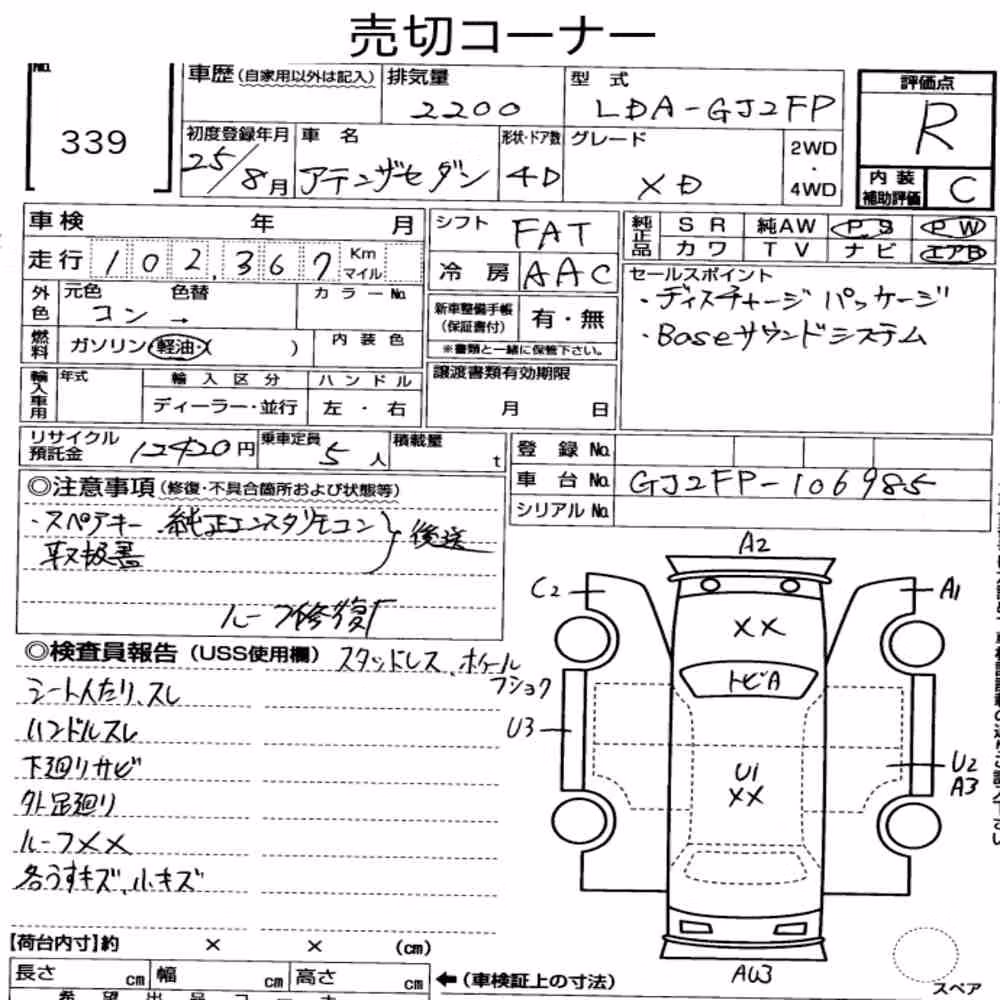 売切コーナー
No.
339
車歴(自家用以外は記入) 排気量 型 式
2200 LDA-GJ2FP
評価点
R
初度登録年月 車 名 形状・ドア数 グレード 2WD・4WD
25/8月 アテンザセダン 4D XD
内装補助評価 C
車検 年 月
シフト FAT
純正品 SR 純AW PS PW
カワ TV ナビ エアB
走行 102,367 Km マイル
冷房 AAC
セールスポイント
・ディスチャージパッケージ
・Boseサウンドシステム
外色 元色 色替 カラーNo.
コン →
新車整備手帳(保証書付) 有・無
※書類と一緒に保管下さい。
燃料 ガソリン・軽油・( ) 内装色
輸入車用 年式 輸入区分 ハンドル
ディーラー・並行 左・右
譲渡書類有効期限
月 日
リサイクル預託金 12420円 乗車定員 5人 積載量 t
登録No.
車台No. GJ2FP-106985
シリアルNo.
◎注意事項(修復・不具合箇所および状態等)
・スペアキー、純正エンスタリモコン
取扱書
後送
ルーフ修復有
◎検査員報告(USS使用欄) スタッドレス、ホイール
フショク
シートへたり、スレ
ハンドルスレ
下廻りサビ
外足廻り
ルーフXX
各うすキズ、小キズ
A2
C2
A1
XX
トビA
U3
U1
XX
U2
A3
AW3
スペア
【荷台内寸】約 × × (cm)
長さ cm 幅 cm 高さ cm ←(車検証上の寸法)